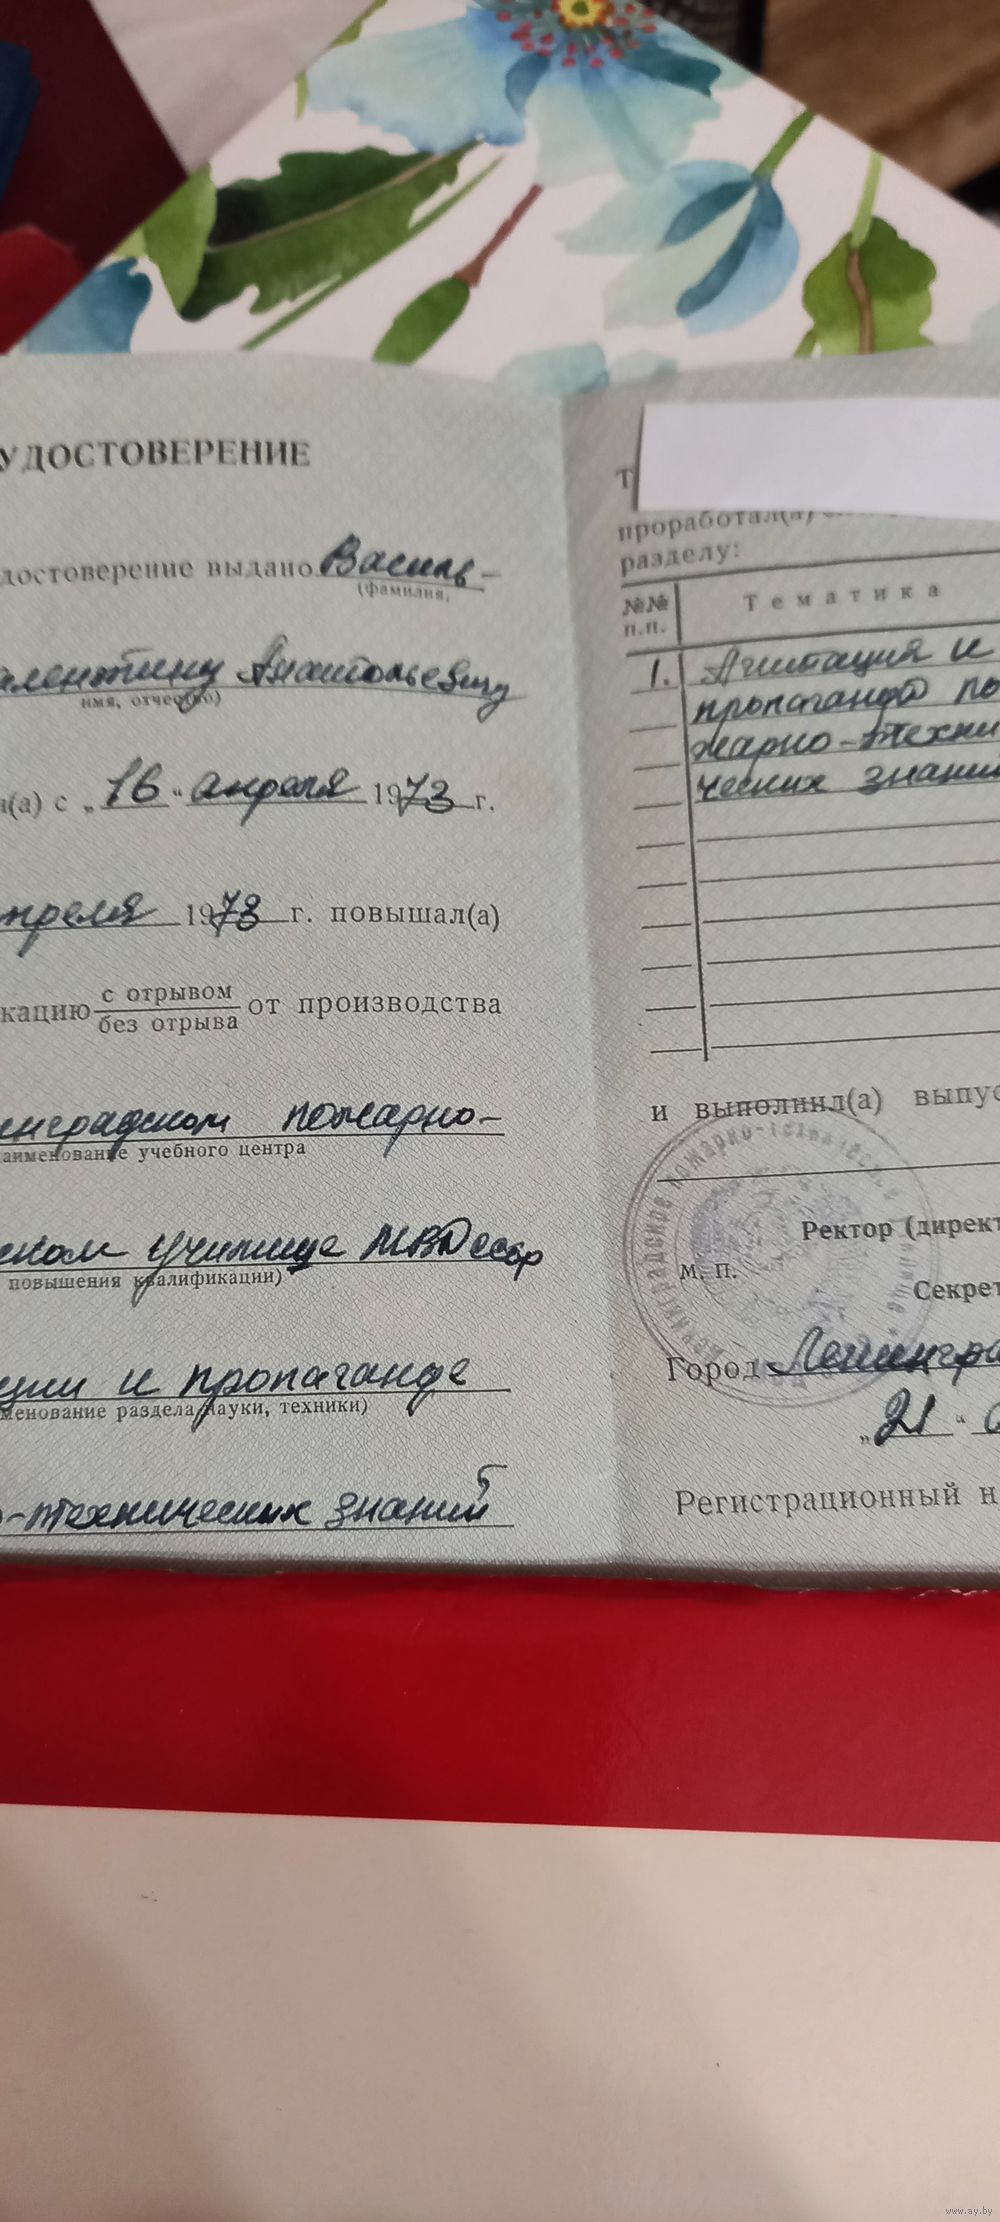 УДОСТОВЕРЕНИЕ
достоверение выдано Василь-
(фамилия,
алентину Анатольевичу
имя, отчество)
н(а) с „16“ апреля 1973 г.
преля 1973 г. повышал(а)
кацию с отрывом
без отрыва от производства
енградском пожарно-
аименование учебного центра
ском училище МВД СССР
повышения квалификации)
ции и пропаганде
менование раздела науки, техники)
о-технических знаний
Т
проработал(а)
разделу:
№№ п.п.
Тематика
1. Агитация и
пропаганда по
жарно-техни
ческих знани
и выполнил(а) выпус
Ректор (директ
М. П.
Секрет
Город Ленингра
„21“
Регистрационный н
www.ay.by